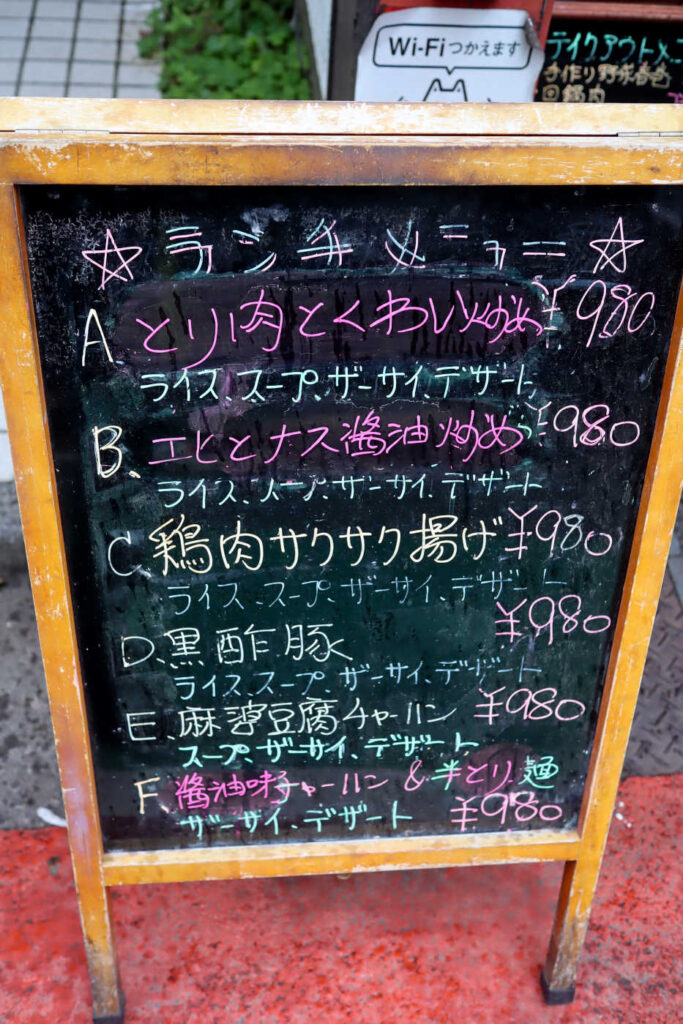 Wi-Fiつかえます
テイクアウトメニ
手作り野菜春巻
回鍋肉
☆ランチメニュー☆
A. とり肉とくわい炒め ¥980
ライス、スープ、ザーサイ、デザート
B、エビとナス醬油炒め ¥980
ライス、スープ、ザーサイ、デザート
C. 鶏肉サクサク揚げ ¥980
ライス、スープ、ザーサイ、デザート
D、黒酢豚 ¥980
ライス、スープ、ザーサイ、デザート
E、麻婆豆腐チャーハン ¥980
スープ、ザーサイ、デザート
F. 醬油味チャーハン & 半とり麺
ザーサイ、デザート ¥980